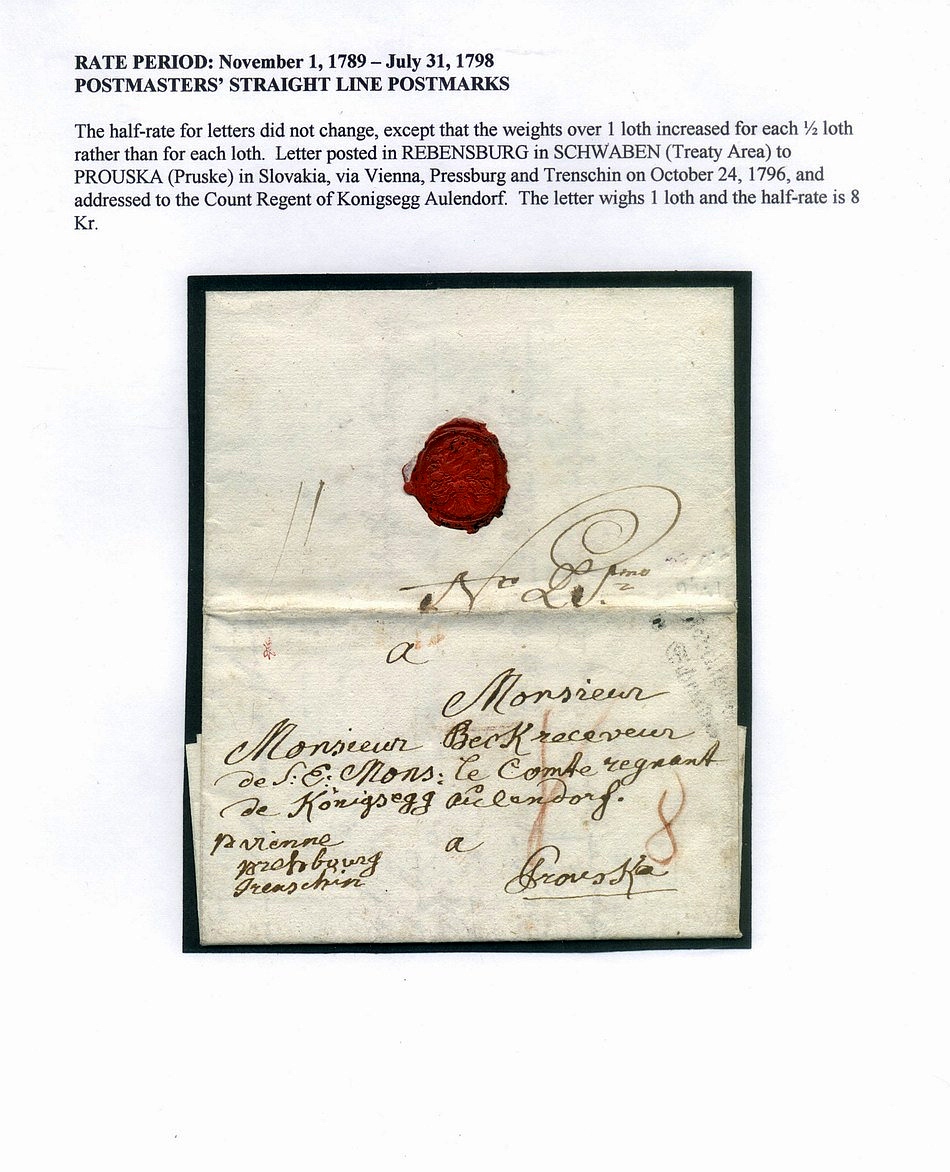 RATE PERIOD: November 1, 1789 – July 31, 1798
POSTMASTERS' STRAIGHT LINE POSTMARKS
The half-rate for letters did not change, except that the weights over 1 loth increased for each ½ loth
rather than for each loth. Letter posted in REBENSBURG in SCHWABEN (Treaty Area) to
PROUSKA (Pruske) in Slovakia, via Vienna, Pressburg and Trenschin on October 24, 1796, and
addressed to the Count Regent of Konigsegg Aulendorf. The letter wighs 1 loth and the half-rate is 8
Kr.
a
Monsieur
Monsieur Beck receveur
de S: E: Mons: le Comte regnant
de Königsegg aulendorf.
p vienne a
presbourg
Trenschin Prouska
8